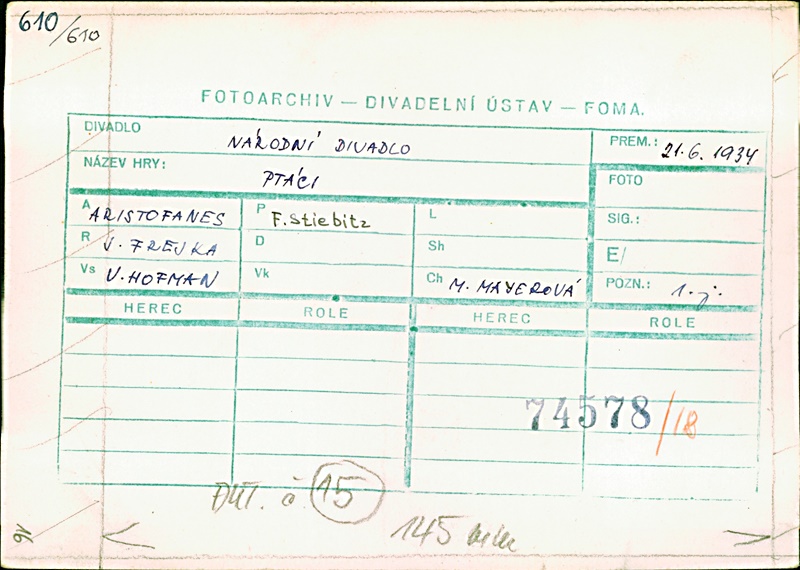 610/610
FOTOARCHIV — DIVADELNÍ ÚSTAV — FOMA.
DIVADLO NÁRODNÍ DIVADLO
PREM.: 21.6.1934
NÁZEV HRY: PTÁCI
FOTO
A ARISTOFANES P F. Stiebitz L
SIG.:
R J. FREJKA D Sh
E/
Vs V. HOFMAN Vk Ch M. MAYEROVÁ
POZN.: 1. j.
HEREC ROLE HEREC ROLE
74578/18
č 15
145 mm
16